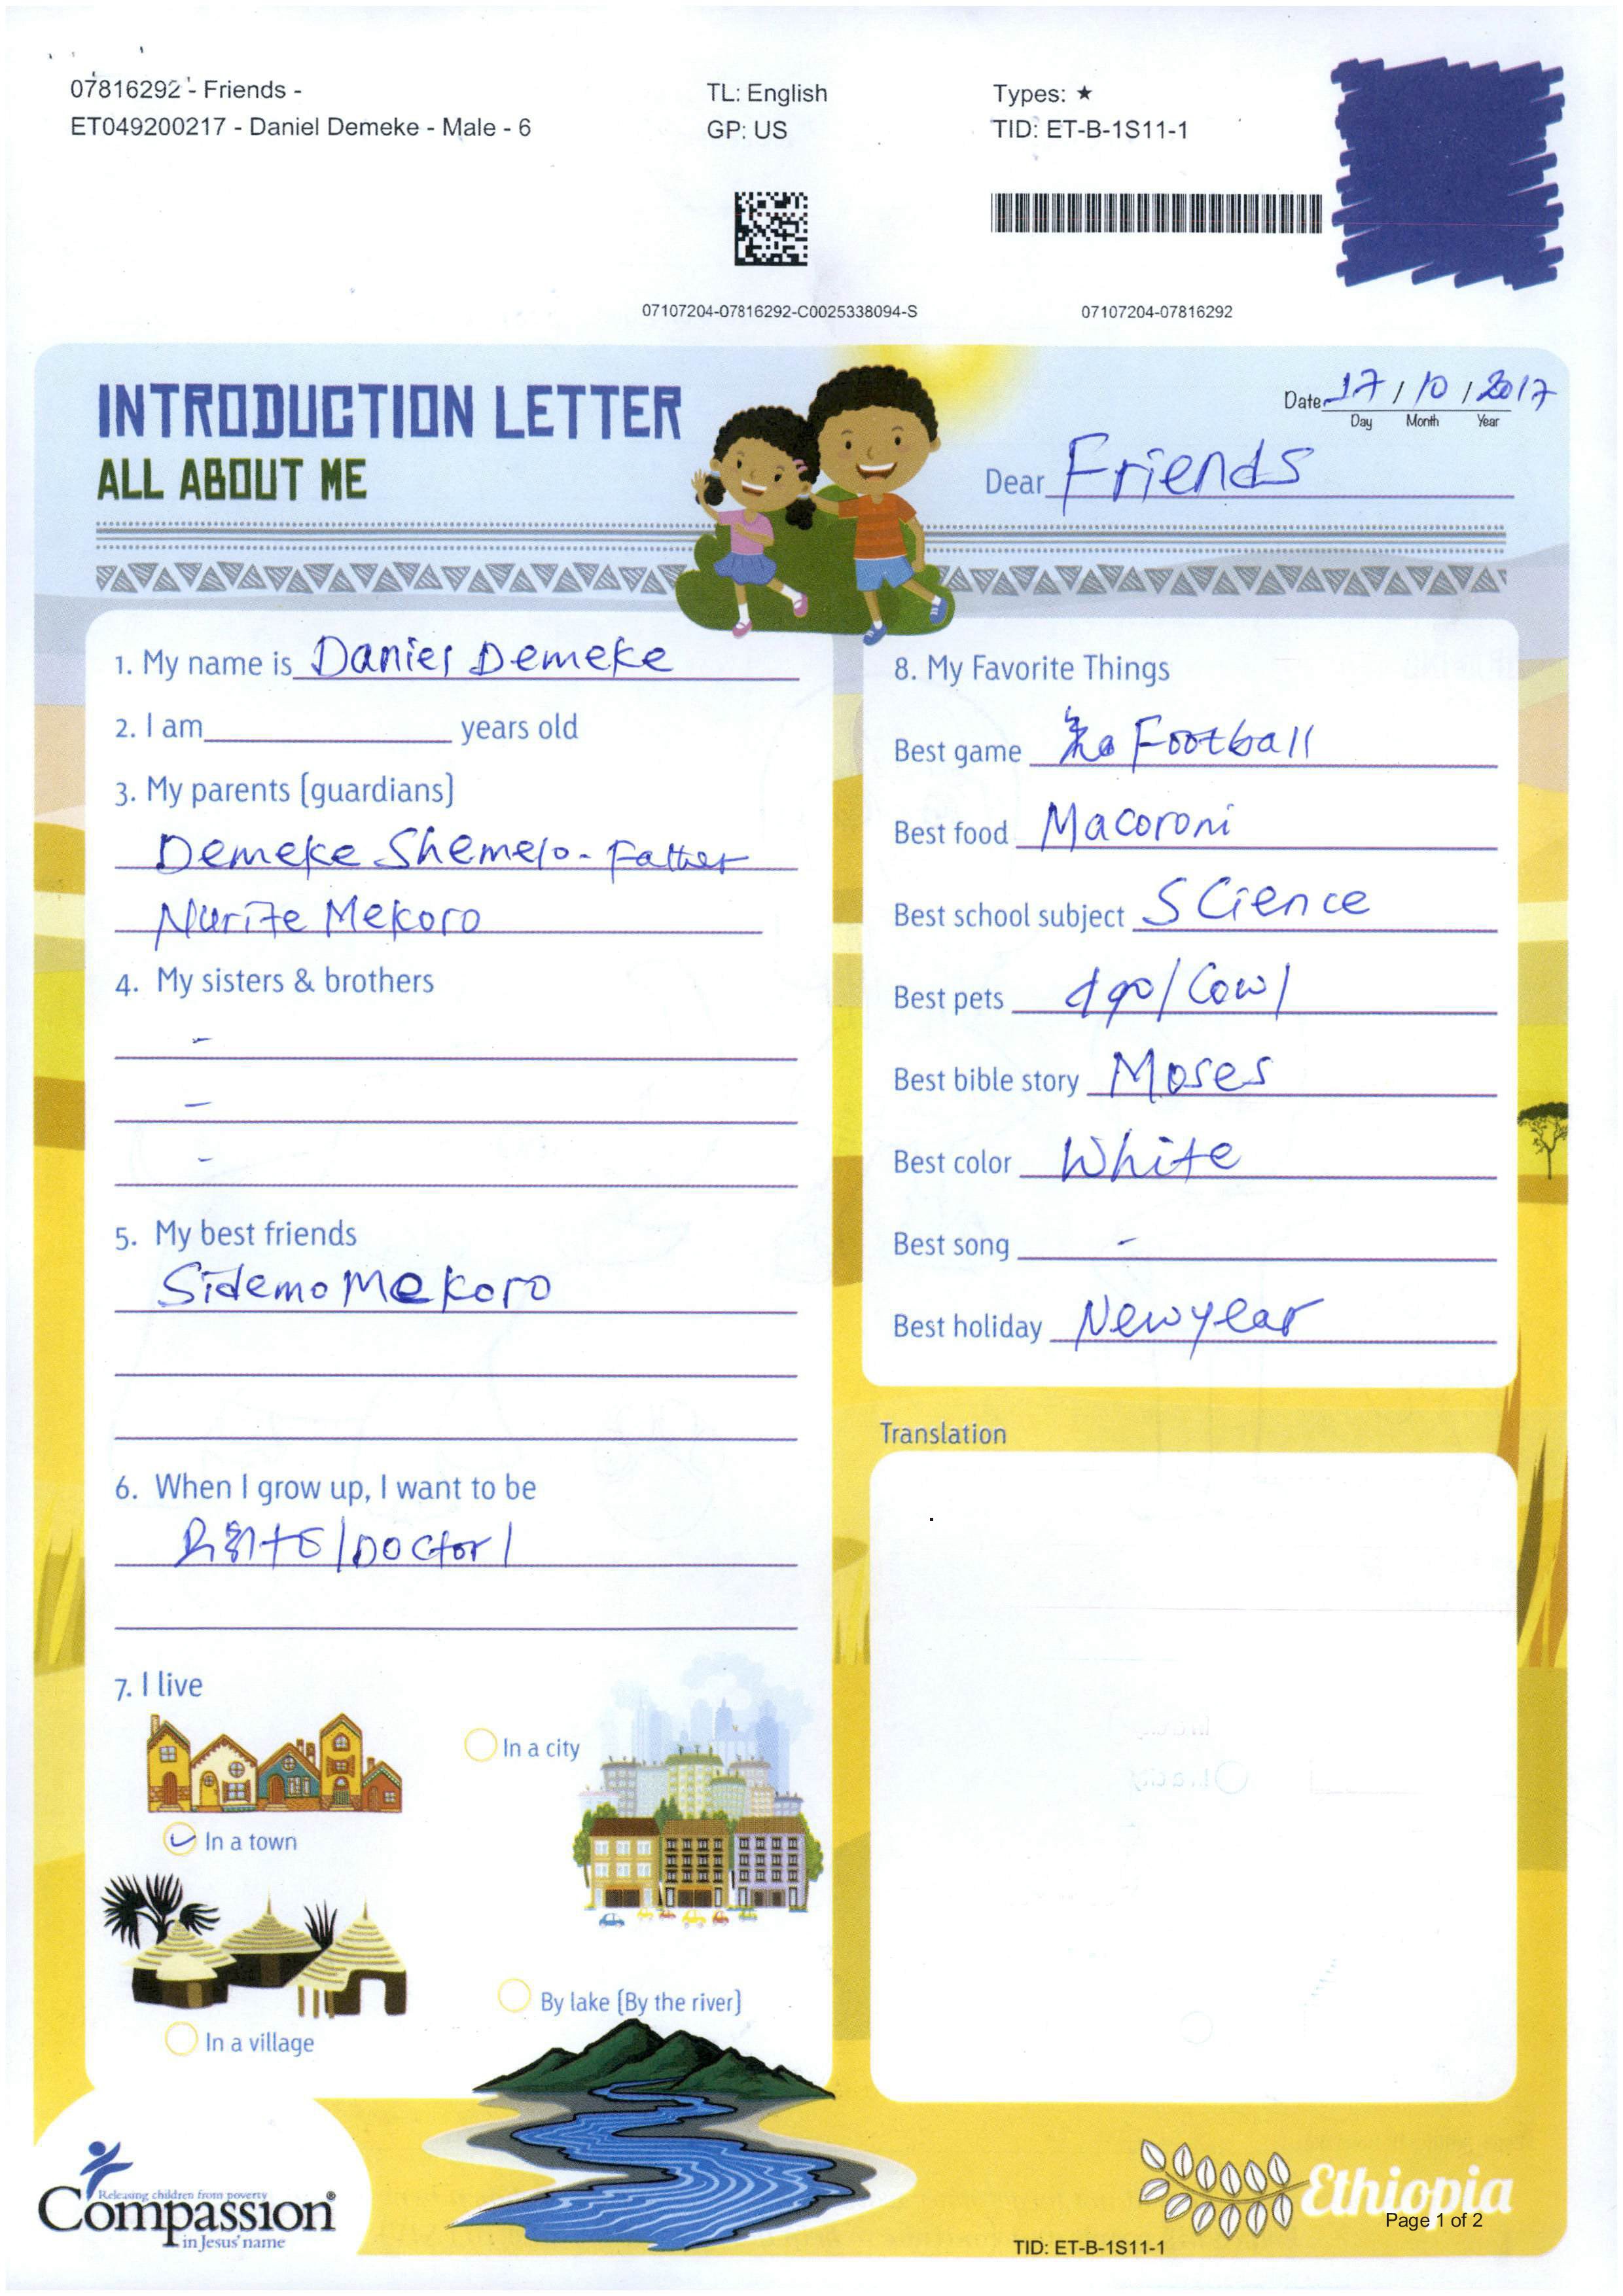 07816292 - Friends -
ET049200217 - Daniel Demeke - Male - 6
TL: English
GP: US
Types: ★
TID: ET-B-1S11-1
07107204-07816292-C0025338094-S
07107204-07816292
INTRODUCTION LETTER
ALL ABOUT ME
Date 17 / 10 / 2017
Day Month Year
Dear Friends
1. My name is Daniel Demeke
2. I am years old
3. My parents (guardians)
Demeke Shemelo - Father
Nurite Mekoro
4. My sisters & brothers
-
-
-
5. My best friends
Sidemo Mekoro
6. When I grow up, I want to be
/Doctor/
7. I live
In a town
In a city
In a village
By lake (By the river)
8. My Favorite Things
Best game Football
Best food Macoroni
Best school subject Science
Best pets ላም/Cow/
Best bible story Moses
Best color White
Best song -
Best holiday New year
Translation
Releasing children from poverty
Compassion®
in Jesus' name
Ethiopia
Page 1 of 2
TID: ET-B-1S11-1